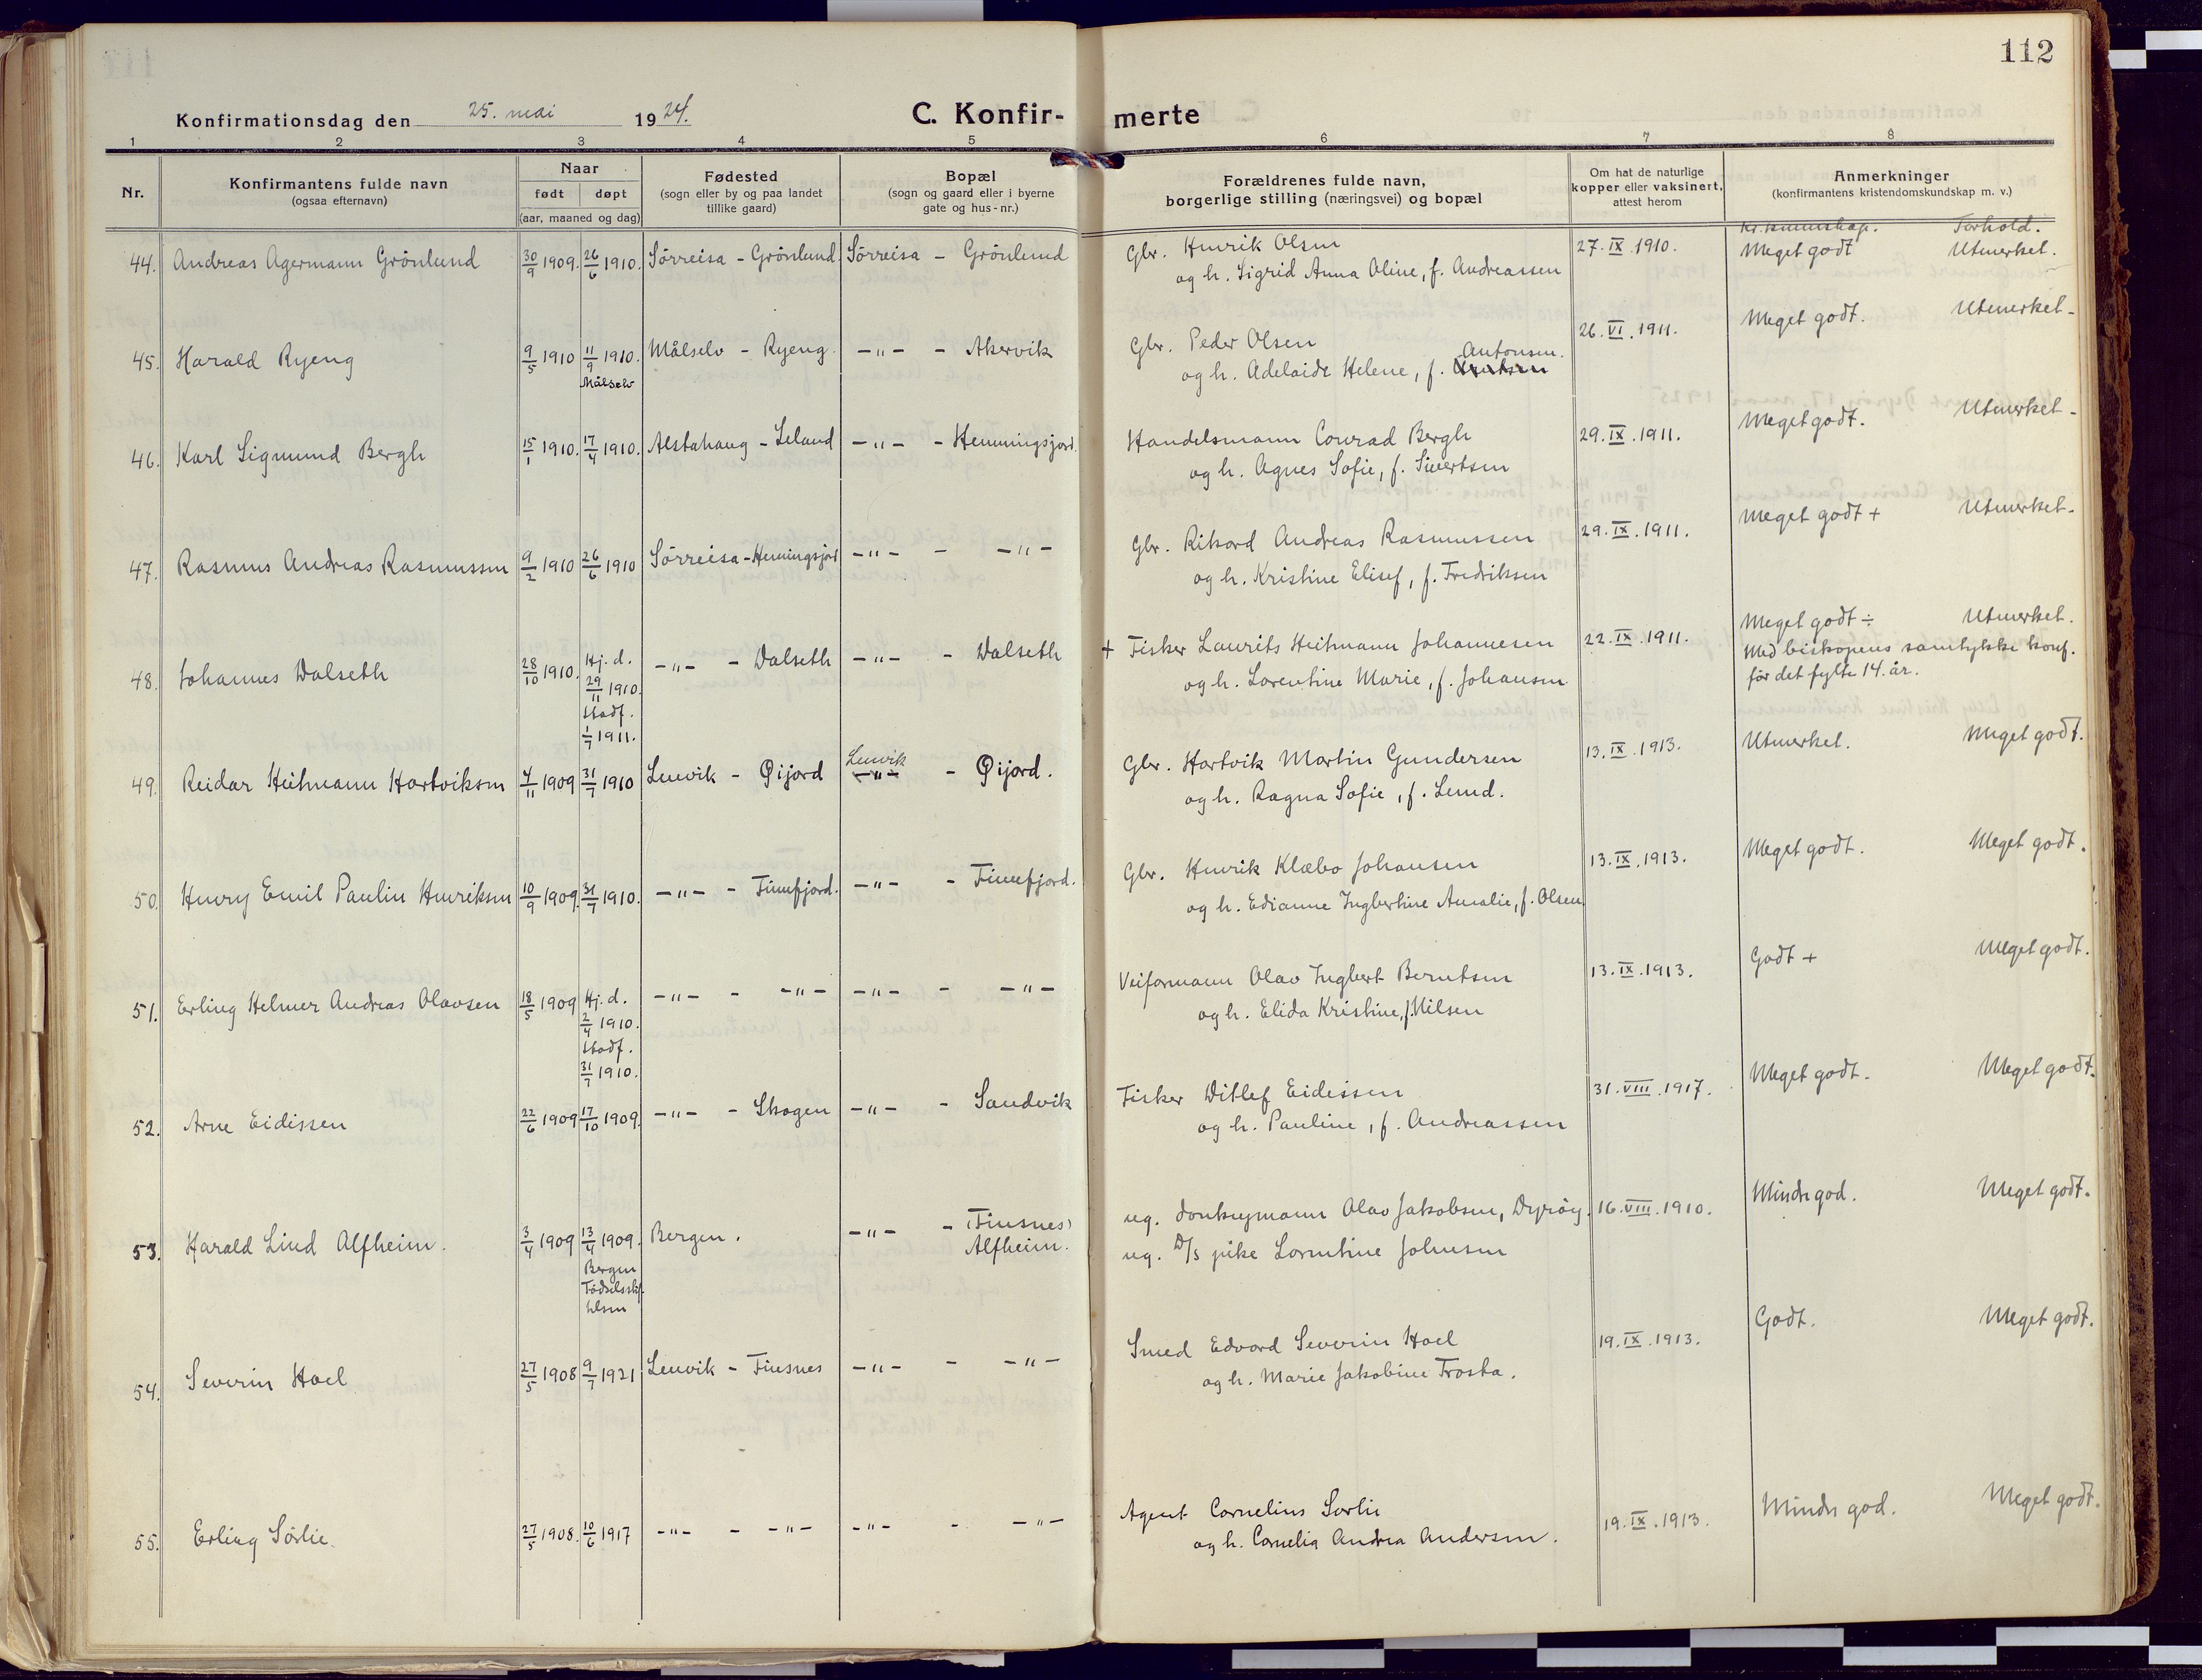 112
Konfirmationsdag den 25. mai 1924.
C. Konfir-merte
1 2 3 4 5 6 7 8
Nr.
Konfirmantens fulde navn
(ogsaa efternavn)
Naar
født døpt
(aar, maaned og dag)
Fødested
(sogn eller by og paa landet
tillike gaard)
Bopæl
(sogn og gaard eller i byerne
gate og hus-nr.)
Forældrenes fulde navn,
borgerlige stilling (næringsvei) og bopæl
Om hat de naturlige
kopper eller vaksinert,
attest herom
Anmerkninger
(konfirmantens kristendomskundskap m. v.)
Kr.kunnskap. Forhold.
44. Andreas Agermann Grönlund 30/9 1909. 26/6 1910. Sörreisa - Grönlund. Sörreisa - Grönlund Gbr. Henrik Olsen 27.IX.1910. Meget godt Utmerket.
og h. Sigrid Anna Oline, f. Andreassen
45. Harald Ryeng 9/5 1910 11/9 1910. Målselv - Ryeng. -"- - Akervik Gbr. Peder Olsen 26.VI.1911. Meget godt. Utmerket-
Målselv
og h. Adelaide Helene, f. Antonsen.
46. Karl Sigmund Bergh 15/1 1910. 17/4 1910. Alstahaug - Leland -"- - Hemmingsjord. Handelsmann Conrad Bergh 29.IX.1911. Meget godt. Utmerket-
og h. Agnes Sofie, f. Sivertsen
47. Rasmus Andreas Rasmussen 9/2 1910 26/6 1910 Sörreisa - Hemingsjord -"- - -"- Gbr. Rikard Andreas Rasmussen 29.IX.1911. Meget godt + Utmerket-
og h. Kristine Elisef, f. Fredriksen
48. Johannes Dalseth 28/10 1910. Hj.d. 29/11 1910. Stadf. 1/7 1911. -"- - Dalseth -"- - Dalseth + Fisker Laurits Heitmann Johannesen 22.IX.1911. Meget godt ÷ Utmerket.
og h. Lorentine Marie, f. Johansen
Med biskopens samtykke konf.
för det fylte 14. år.
49. Reidar Heitmann Hartviksen 4/11 1909 31/7 1910 Lenvik - Øijord Lenvik -"- - Øijord. Gbr. Hartvik Martin Gundersen 13.IX.1913. Utmerket. Meget godt.
og h. Ragna Sofie, f. Lund.
50. Henry Emil Paulin Henriksen 10/9 1909. 31/7 1910. -"- - Finnfjord. -"- - Finnfjord. Gbr. Henrik Klæbo Johansen 13.IX.1913. Meget godt. Meget godt.
og h. Edianne Ingbertine Amalie, f. Olsen
51. Erling Helmer Andreas Olavsen 18/5 1909 Hj.d. 2/4 1910. Stadf. 31/7 1910. -"- - -"- -"- - -"- Veiformann Olav Ingbert Berntsen 13.IX.1913. Godt + Meget godt.
og h. Elida Kristine, f. Nilsen
52. Arne Eidissen 22/6 1909 17/10 1909. -"- - Skogen -"- - Sandvik Fisker Ditlef Eidissen 31.VIII.1917. Meget godt. Meget godt.
og h. Pauline, f. Andreassen
53. Harald Lind Alfheim. 3/4 1909 13/4 1909. Bergen. -"- - (Finsnes) Alfheim. ug. donkeymann Olav Jakobsen, Dyröy. 16.VIII.1910. Mindre god. Meget godt.
Bergen
ug. D/s pike Lorentine Johnsen
54. Severin Hoel 27/5 1908 9/7 1921 Lenvik - Finsnes -"- - -"- Smed Edvard Severin Hoel 19.IX.1913. Godt. Meget godt.
og h. Marie Jakobine Trosta.
55. Erling Sörlie. 27/5 1908. 10/6 1917 -"- - -"- -"- - -"- Agent Cornelius Sorlie 19.IX.1913. Mindre god. Meget godt.
og h. Cornelia Andrea Andersen.